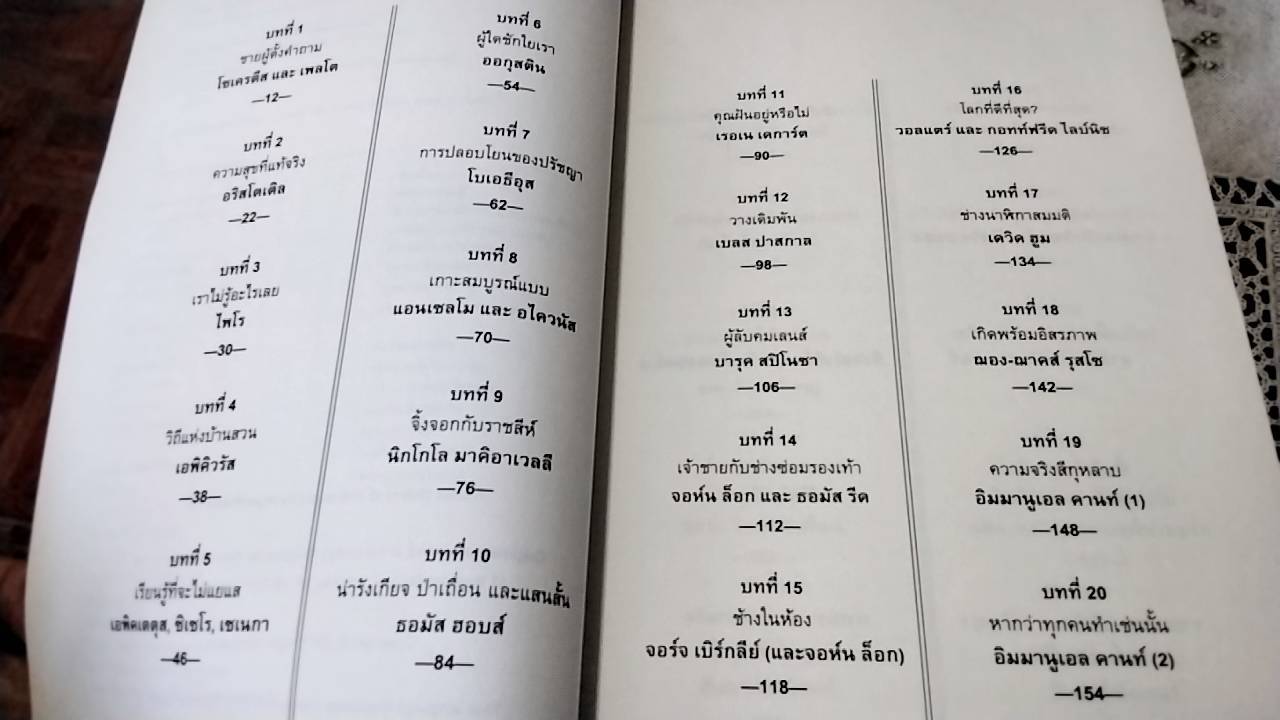 บทที่ 1
ชายผู้ตั้งคำถาม
โซเครตีส และ เพลโต
—12—
บทที่ 2
ความสุขที่แท้จริง
อริสโตเติล
—22—
บทที่ 3
เราไม่รู้อะไรเลย
ไพโร
—30—
บทที่ 4
วิถีแห่งบ้านสวน
เอพิคิวรัส
—38—
บทที่ 5
เรียนรู้ที่จะไม่แยแส
เอพิคเตตุส, ซิเซโร, เซเนกา
—46—
บทที่ 6
ผู้ใดชักใยเรา
ออกุสติน
—54—
บทที่ 7
การปลอบโยนของปรัชญา
โบเอธีอุส
—62—
บทที่ 8
เกาะสมบูรณ์แบบ
แอนเซลโม และ อไควนัส
—70—
บทที่ 9
จิ้งจอกกับราชสีห์
นิกโกโล มาคิอาเวลลี
—76—
บทที่ 10
น่ารังเกียจ ป่าเถื่อน และแสนสั้น
ธอมัส ฮอบส์
—84—
บทที่ 11
คุณฝันอยู่หรือไม่
เรอเน เดการ์ต
—90—
บทที่ 12
วางเดิมพัน
เบลส ปาสกาล
—98—
บทที่ 13
ผู้ลับคมเลนส์
บารุค สปิโนซา
—106—
บทที่ 14
เจ้าชายกับช่างซ่อมรองเท้า
จอห์น ล็อก และ ธอมัส รีด
—112—
บทที่ 15
ช้างในห้อง
จอร์จ เบิร์กลีย์ (และจอห์น ล็อก)
—118—
บทที่ 16
โลกที่ดีที่สุด?
วอลแตร์ และ กอทท์ฟรีด ไลบ์นิซ
—126—
บทที่ 17
ช่างนาฬิกาสมมติ
เดวิด ฮูม
—134—
บทที่ 18
เกิดพร้อมอิสรภาพ
ฌอง-ฌาคส์ รุสโซ
—142—
บทที่ 19
ความจริงสีกุหลาบ
อิมมานูเอล คานท์ (1)
—148—
บทที่ 20
หากว่าทุกคนทำเช่นนั้น
อิมมานูเอล คานท์ (2)
—154—